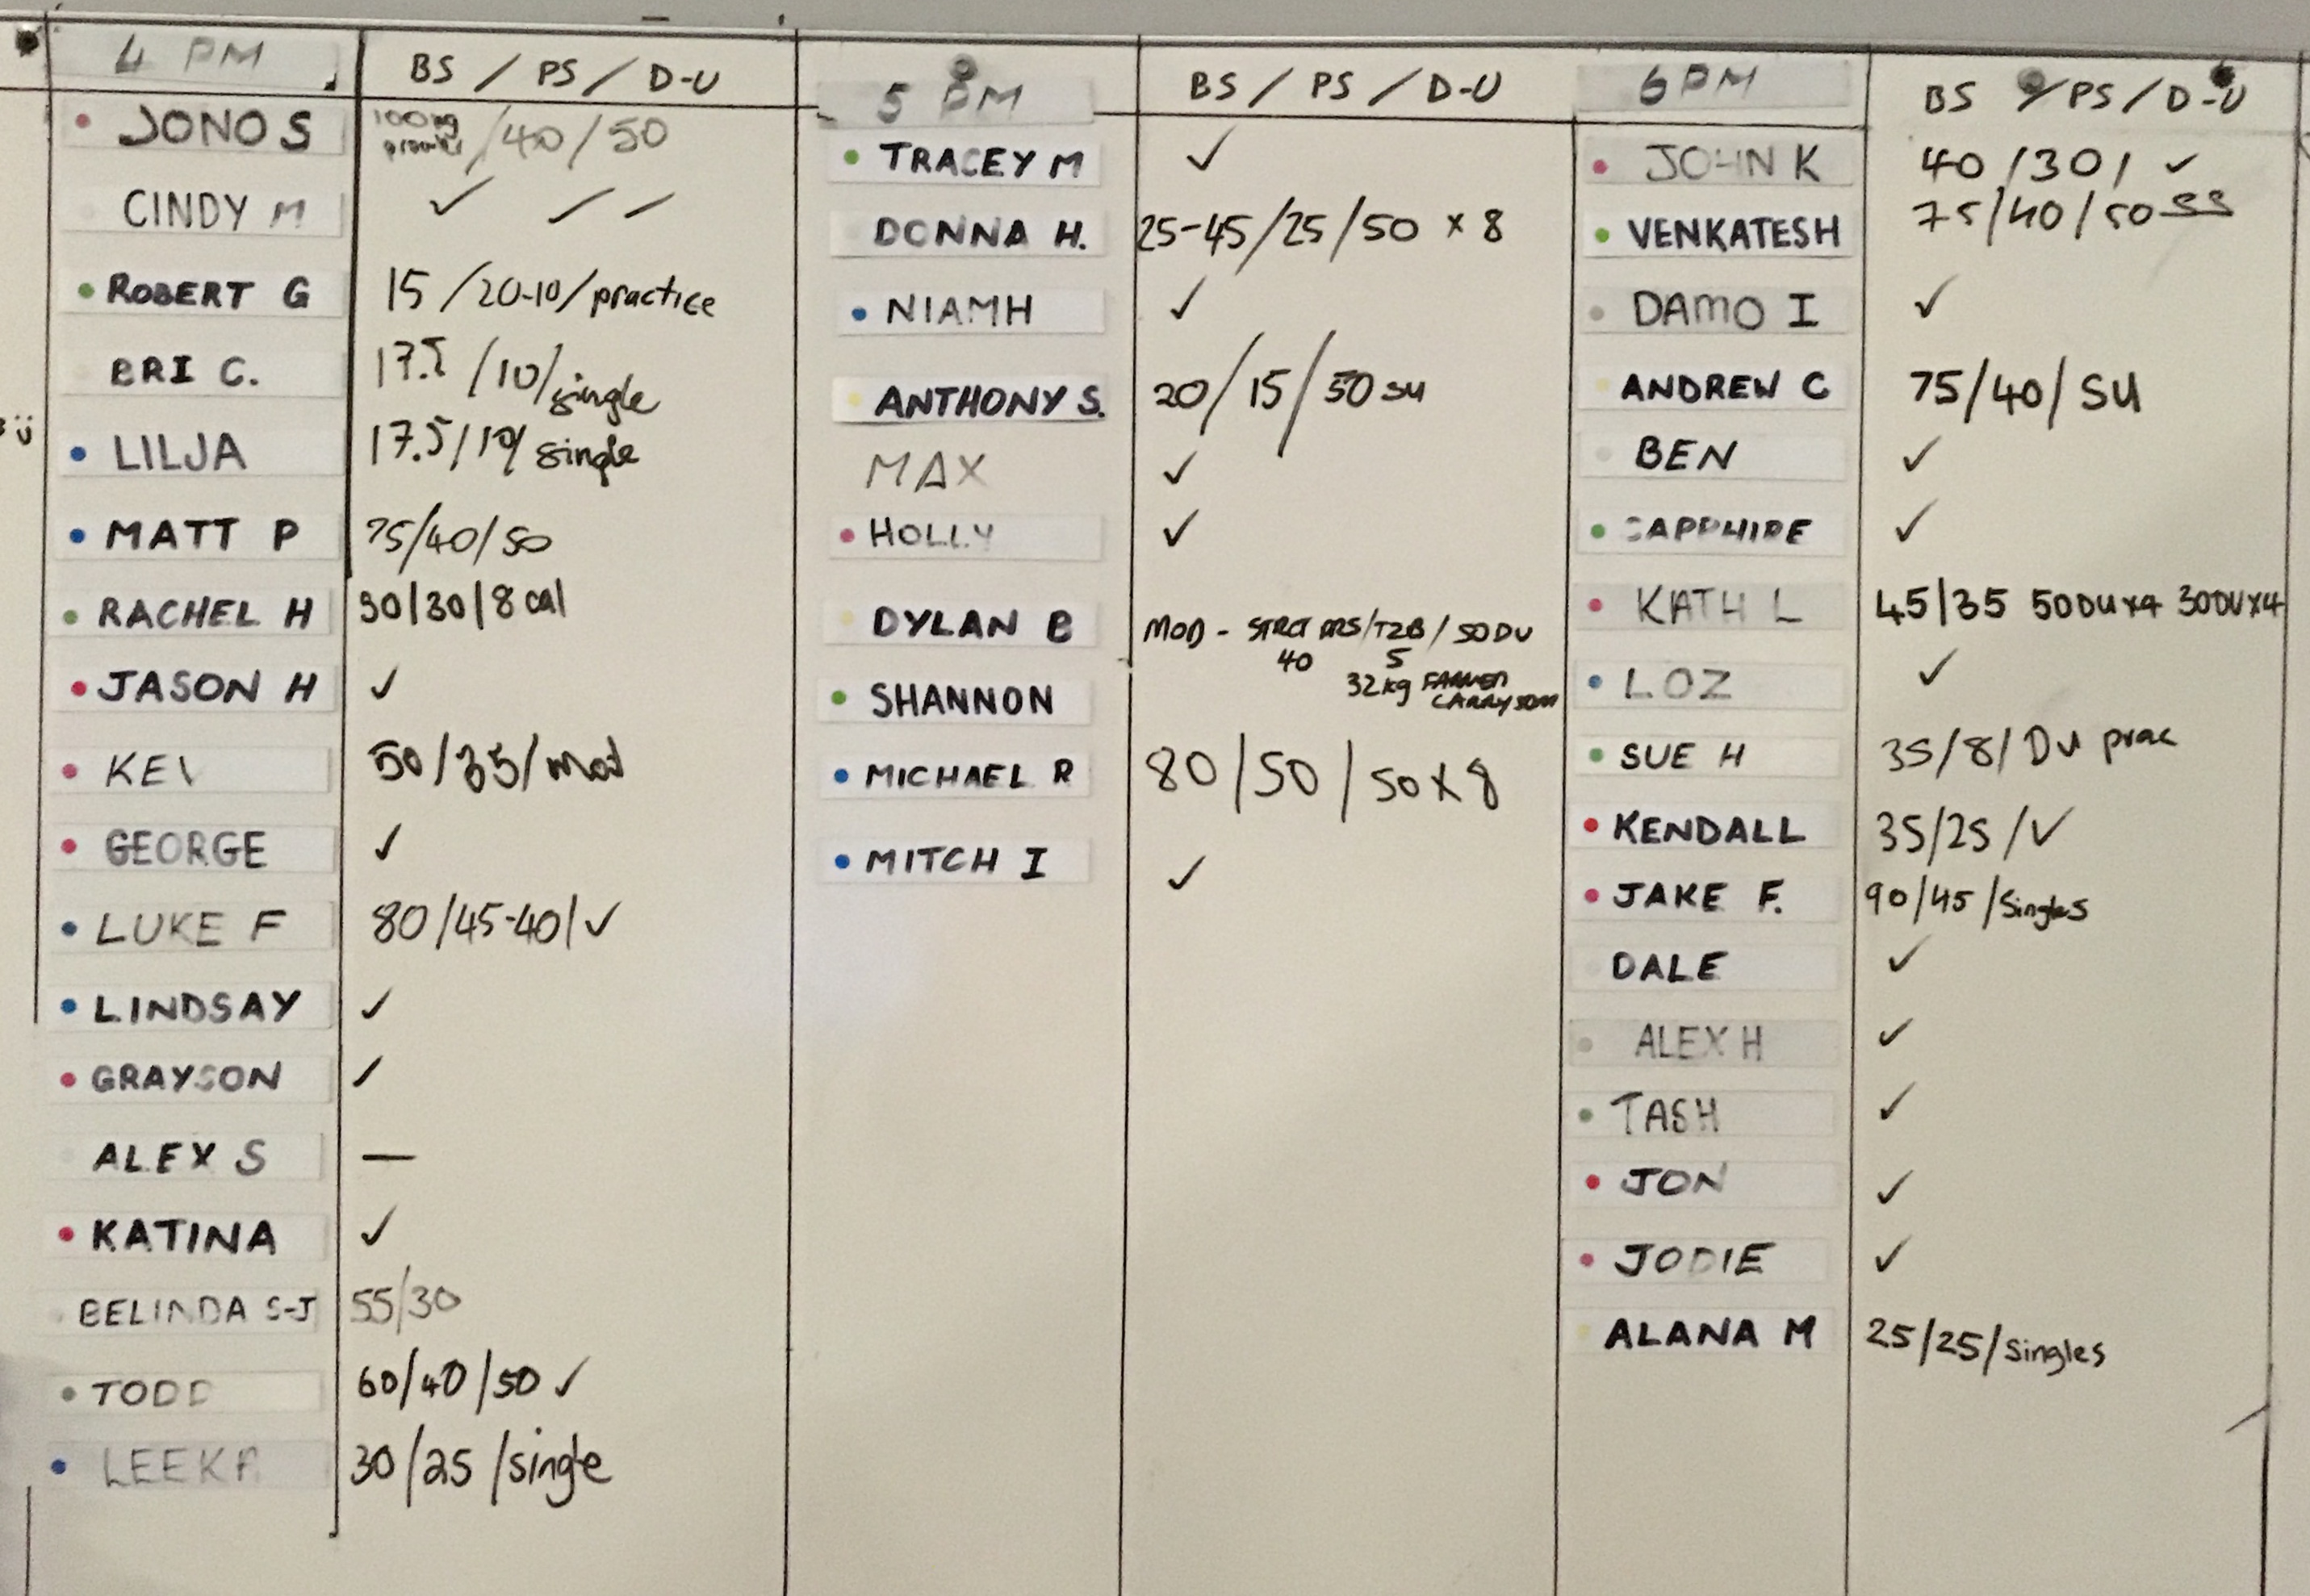 4 PM BS / PS / D-U
JONO S 100kg prowler / 40 / 50
CINDY M ✓ ✓ ✓
ROBERT G 15 / 20-10 / practice
BRI C. 17.5 / 10 / single
LILJA 17.5 / 10 / single
MATT P 75/40/50
RACHEL H 30/8 cal
JASON H ✓
KEV 50/35/mod
GEORGE ✓
LUKE F 80/45-40/✓
LINDSAY ✓
GRAYSON ✓
ALEX S —
KATINA ✓
BELINDA S-J 55/30
TODD 60/40/50 ✓
LEEKA 30/25/single
5 PM BS / PS / D-U
TRACEY M ✓
DONNA H. 25-45/25/50 x 8
NIAMH ✓
ANTHONY S. 20/15/50 su
MAX ✓
HOLLY ✓
DYLAN B MOD - STRCT PRS/T2B/50DU
40 5
32kg FARMER
CARRY 50m
SHANNON
MICHAEL R 80/50/50x8
MITCH I ✓
6PM BS / PS / D-U
JOHN K 40/30/ ✓
VENKATESH 75/40/50 SS
DAMO I ✓
ANDREW C 75/40/SU
BEN ✓
SAPPHIRE ✓
KATH L 45/35 50DUx4 30DUx4
LOZ ✓
SUE H 35/8/DU prac
KENDALL 35/25/✓
JAKE F. 90/45/Singles
DALE ✓
ALEX H ✓
TASH ✓
JON ✓
JODIE ✓
ALANA M 25/25/Singles